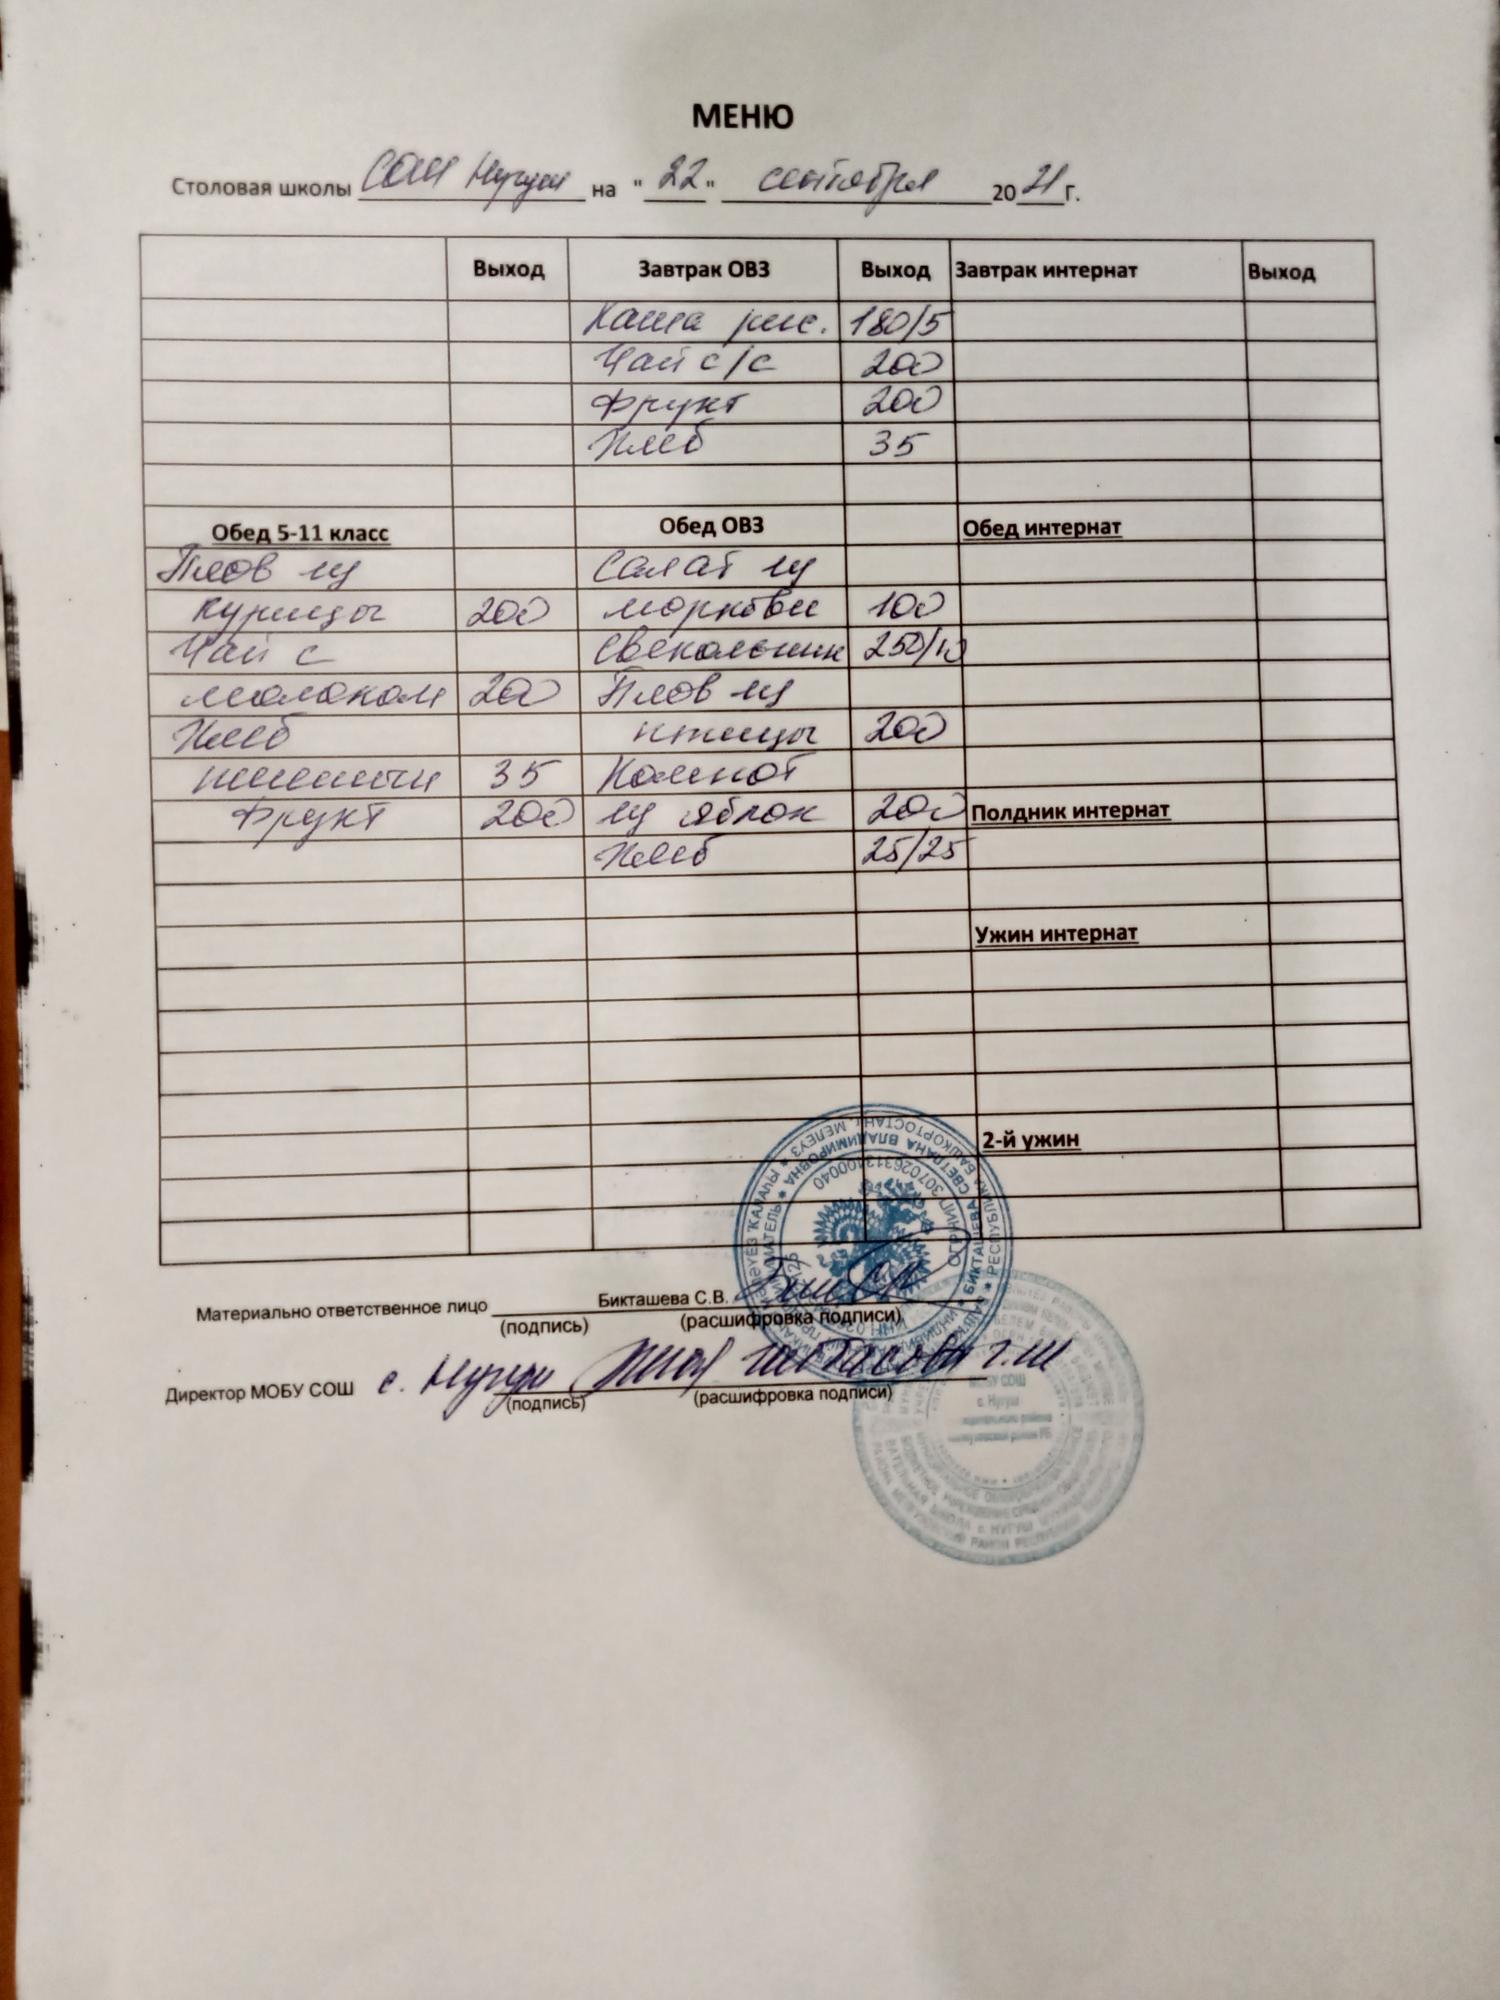 МЕНЮ
Столовая школы СОШ Нугуш на "22" сентября 2021г.
Выход Завтрак ОВЗ Выход Завтрак интернат Выход
Каша рис. 180/5
Чай с/с 200
Фрукт 200
Хлеб 35
Обед 5-11 класс Обед ОВЗ Обед интернат
Плов из Салат из
курицы 200 моркови 100
Чай с Свекольник 250/10
молоком 200 Плов из
Хлеб птицы 200
пшеничн 35 Компот
Фрукт 200 из яблок 200 Полдник интернат
Хлеб 25/25
Ужин интернат
2-й ужин
Материально ответственное лицо Бикташева С.В.
(подпись) (расшифровка подписи)
Директор МОБУ СОШ с. Нугуш Г.Ш
(подпись) (расшифровка подписи)
БИКТАШЕВА СВЕТЛАНА ВЛАДИМИРОВНА
РЕСПУБЛИКА БАШКОРТОСТАН г. МЕЛЕУЗ
ОГРНИП 307026313400040
МОБУ СОШ
с. Нугуш